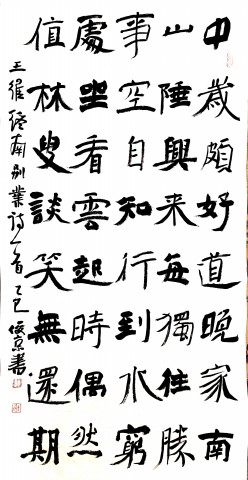 中歲頗好道晚家南
山陲興来每獨往勝
事空自知行到水窮
處坐看雲起時偶然
值林叟談笑無還期
王維終南别業詩一首乙巳書